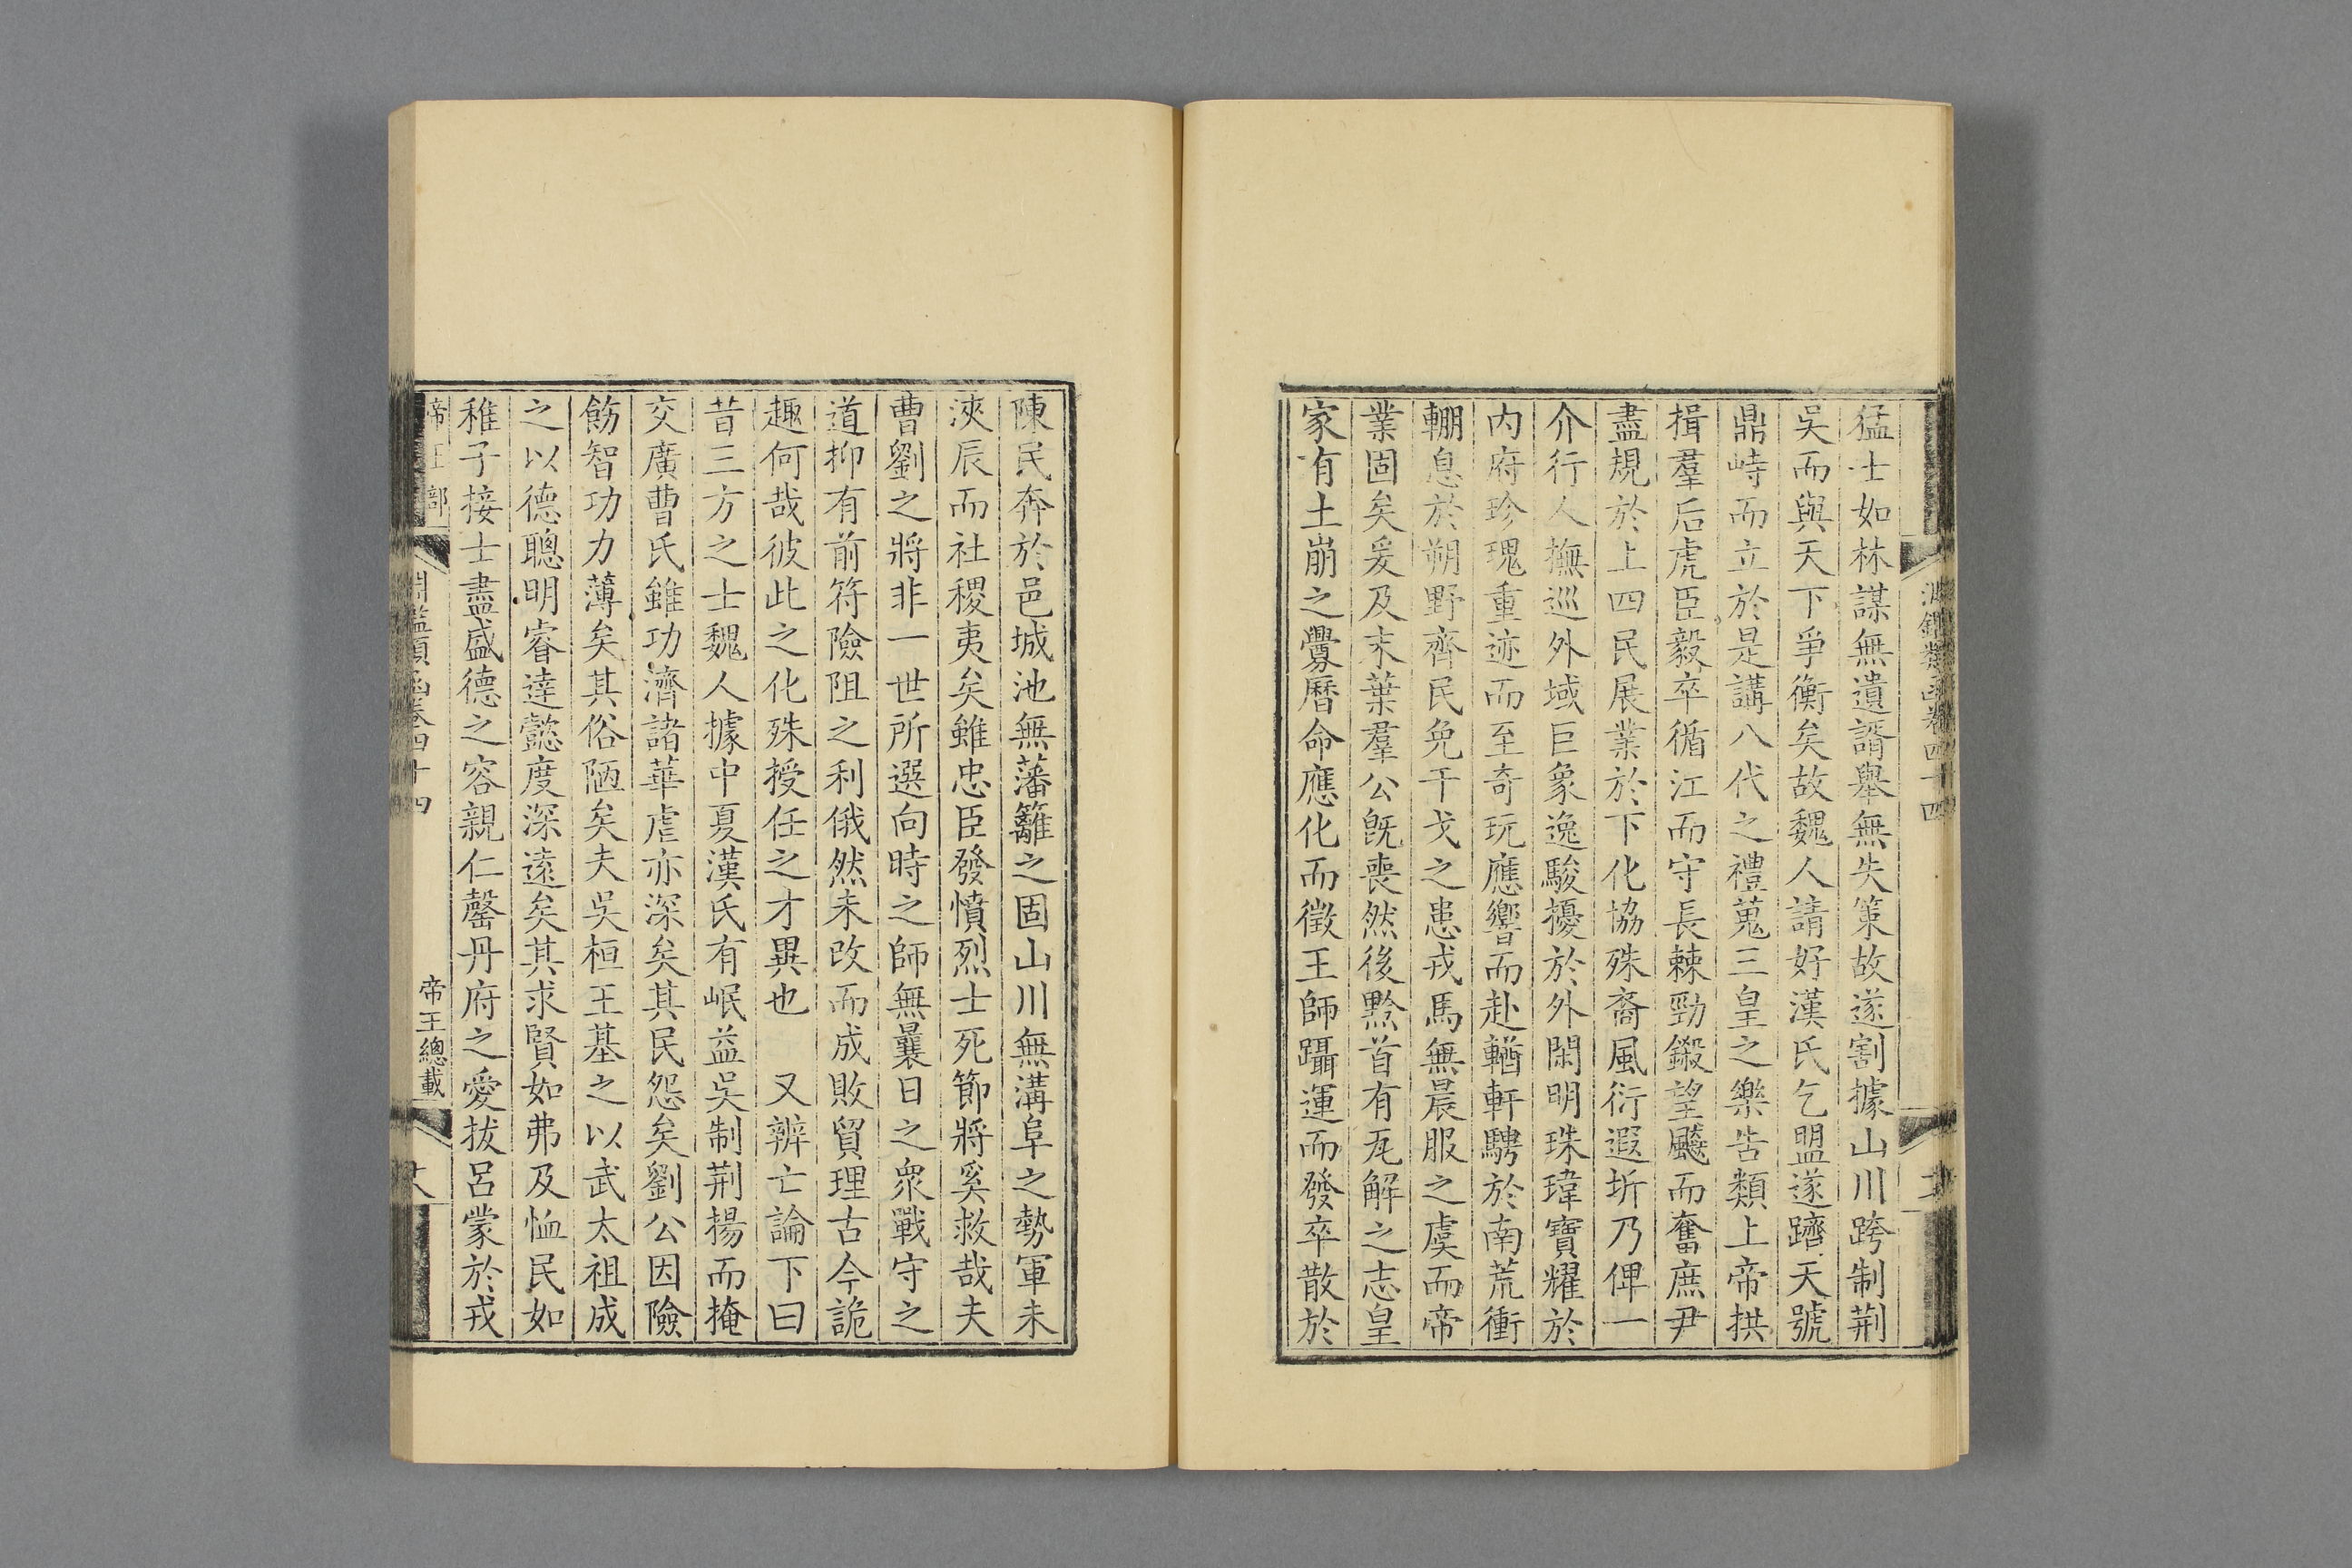 淵鑑類函卷四十四
猛士如林謀無遺諝舉無失策故遂割據山川跨制荆
吳而與天下爭衡矣故魏人請好漢氏乞盟遂躋天號
鼎峙而立於是講八代之禮蒐三皇之樂告類上帝拱
揖羣后虎臣毅卒循江而守長棘勁鎩望飇而奮庶尹
盡規於上四民展業於下化協殊裔風衍遐圻乃俾一
介行人撫巡外域巨象逸駿擾於外閑明珠瑋寶耀於
內府珍瑰重迹而至奇玩應響而赴輶軒騁於南荒衝
輣息於朔野齊民免干戈之患戎馬無晨服之虞而帝
業固矣爰及末葉羣公旣喪然後黔首有瓦解之志皇
家有土崩之釁曆命應化而微王師躡運而發卒散於
陳民奔於邑城池無藩籬之固山川無溝阜之勢軍未
浹辰而社稷夷矣雖忠臣發憤烈士死節將奚救哉夫
曹劉之將非一世所選向時之師無曩日之衆戰守之
道抑有前符險阻之利俄然未改而成敗貿理古今詭
趣何哉彼此之化殊授任之才異也　又辨亡論下曰
昔三方之士魏人據中夏漢氏有岷益吳制荆揚而掩
交廣曹氏雖功濟諸華虐亦深矣其民怨矣劉公因險
飭智功力薄矣其俗陋矣夫吳桓王基之以武太祖成
之以德聰明睿達懿度深遠矣其求賢如弗及恤民如
稚子接士盡盛德之容親仁罄丹府之愛拔呂蒙於戎
帝王部
淵鑑類函卷四十四
帝王總載